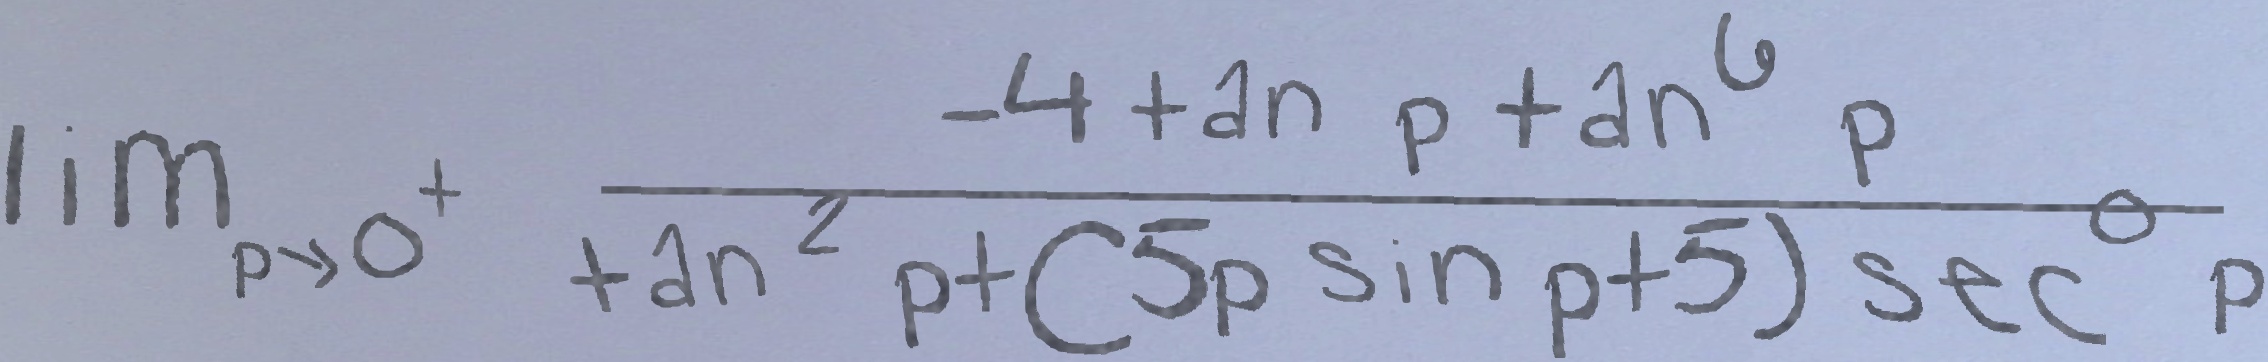 \lim_{p \to 0^+} \frac{-4 \tan p + \tan^6 p}{\tan^2 p + (5p \sin p + 5) \sec^0 p}